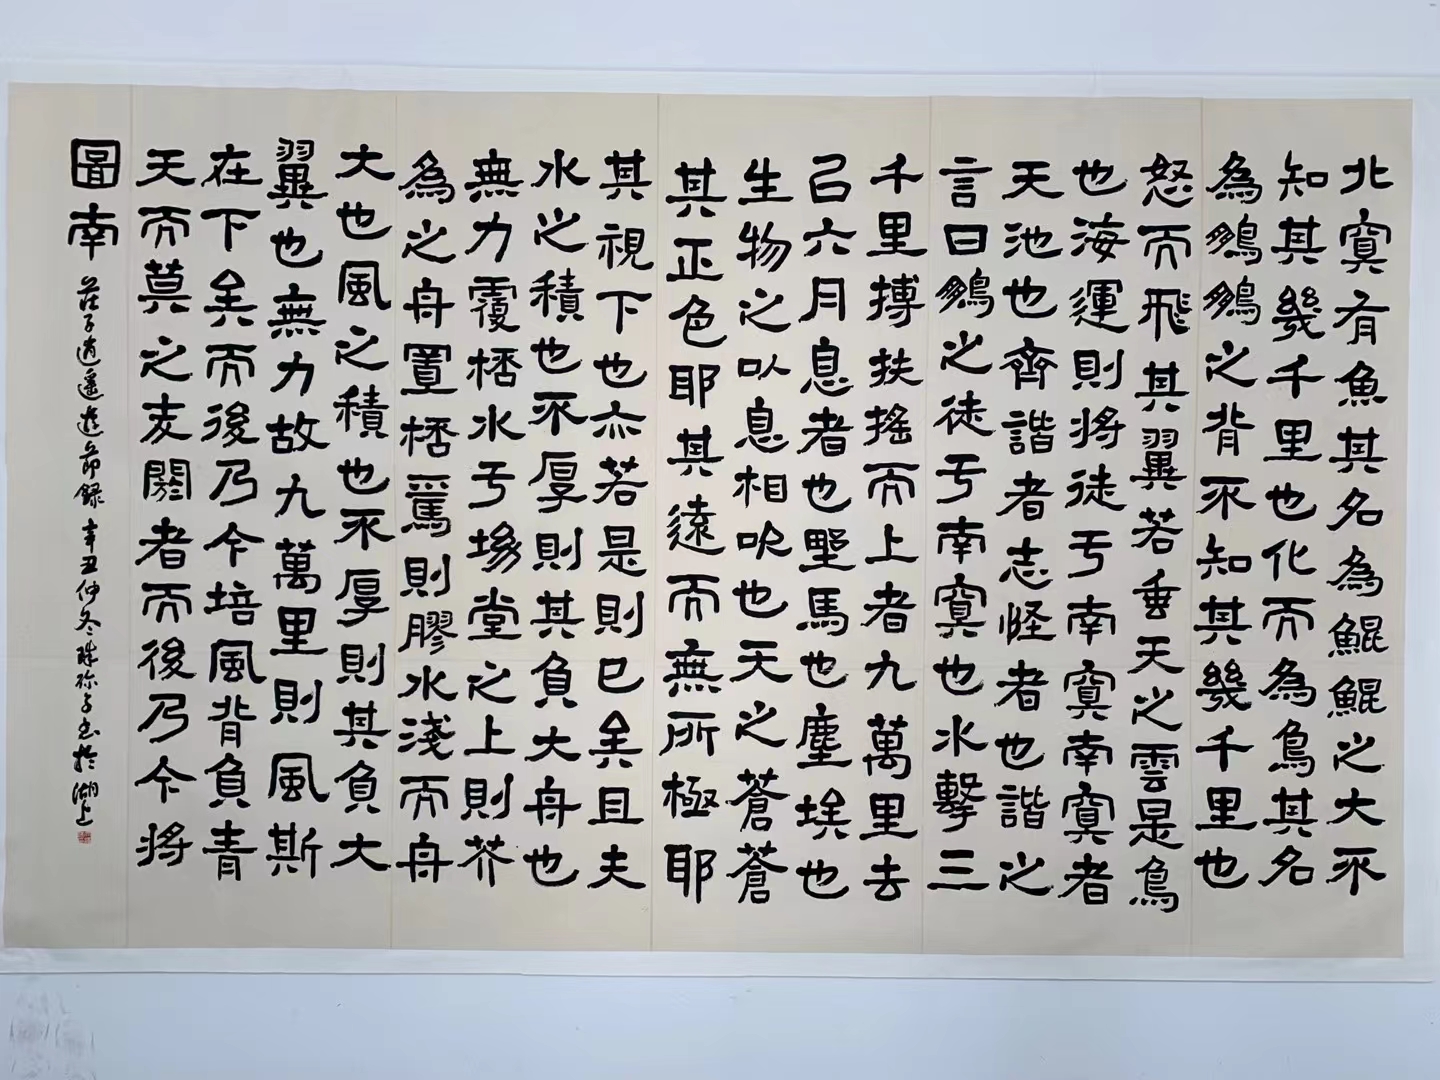 北冥有魚其名為鯤鯤之大不
知其幾千里也化而為鳥其名
為鵬鵬之背不知其幾千里也
怒而飛其翼若垂天之雲是鳥
也海運則將徒于南冥南冥者
天池也齊諧者志怪者也諧之
言曰鵬之徒于南冥也水擊三
千里搏扶搖而上者九萬里去
㠯六月息者也野馬也塵埃也
生物之以息相吹也天之蒼蒼
其正色耶其遠而無所極耶
其視下也亦若是則已矣且夫
水之積也不厚則其負大舟也
無力覆桮水于坳堂之上則芥
為之舟置桮焉則膠水淺而舟
大也風之積也不厚則其負大
翼也無力故九萬里則風斯
在下矣而後乃今培風背負青
天而莫之夭閼者而後乃今將
圖南
莊子逍遙遊節錄 辛丑仲冬 於湖上